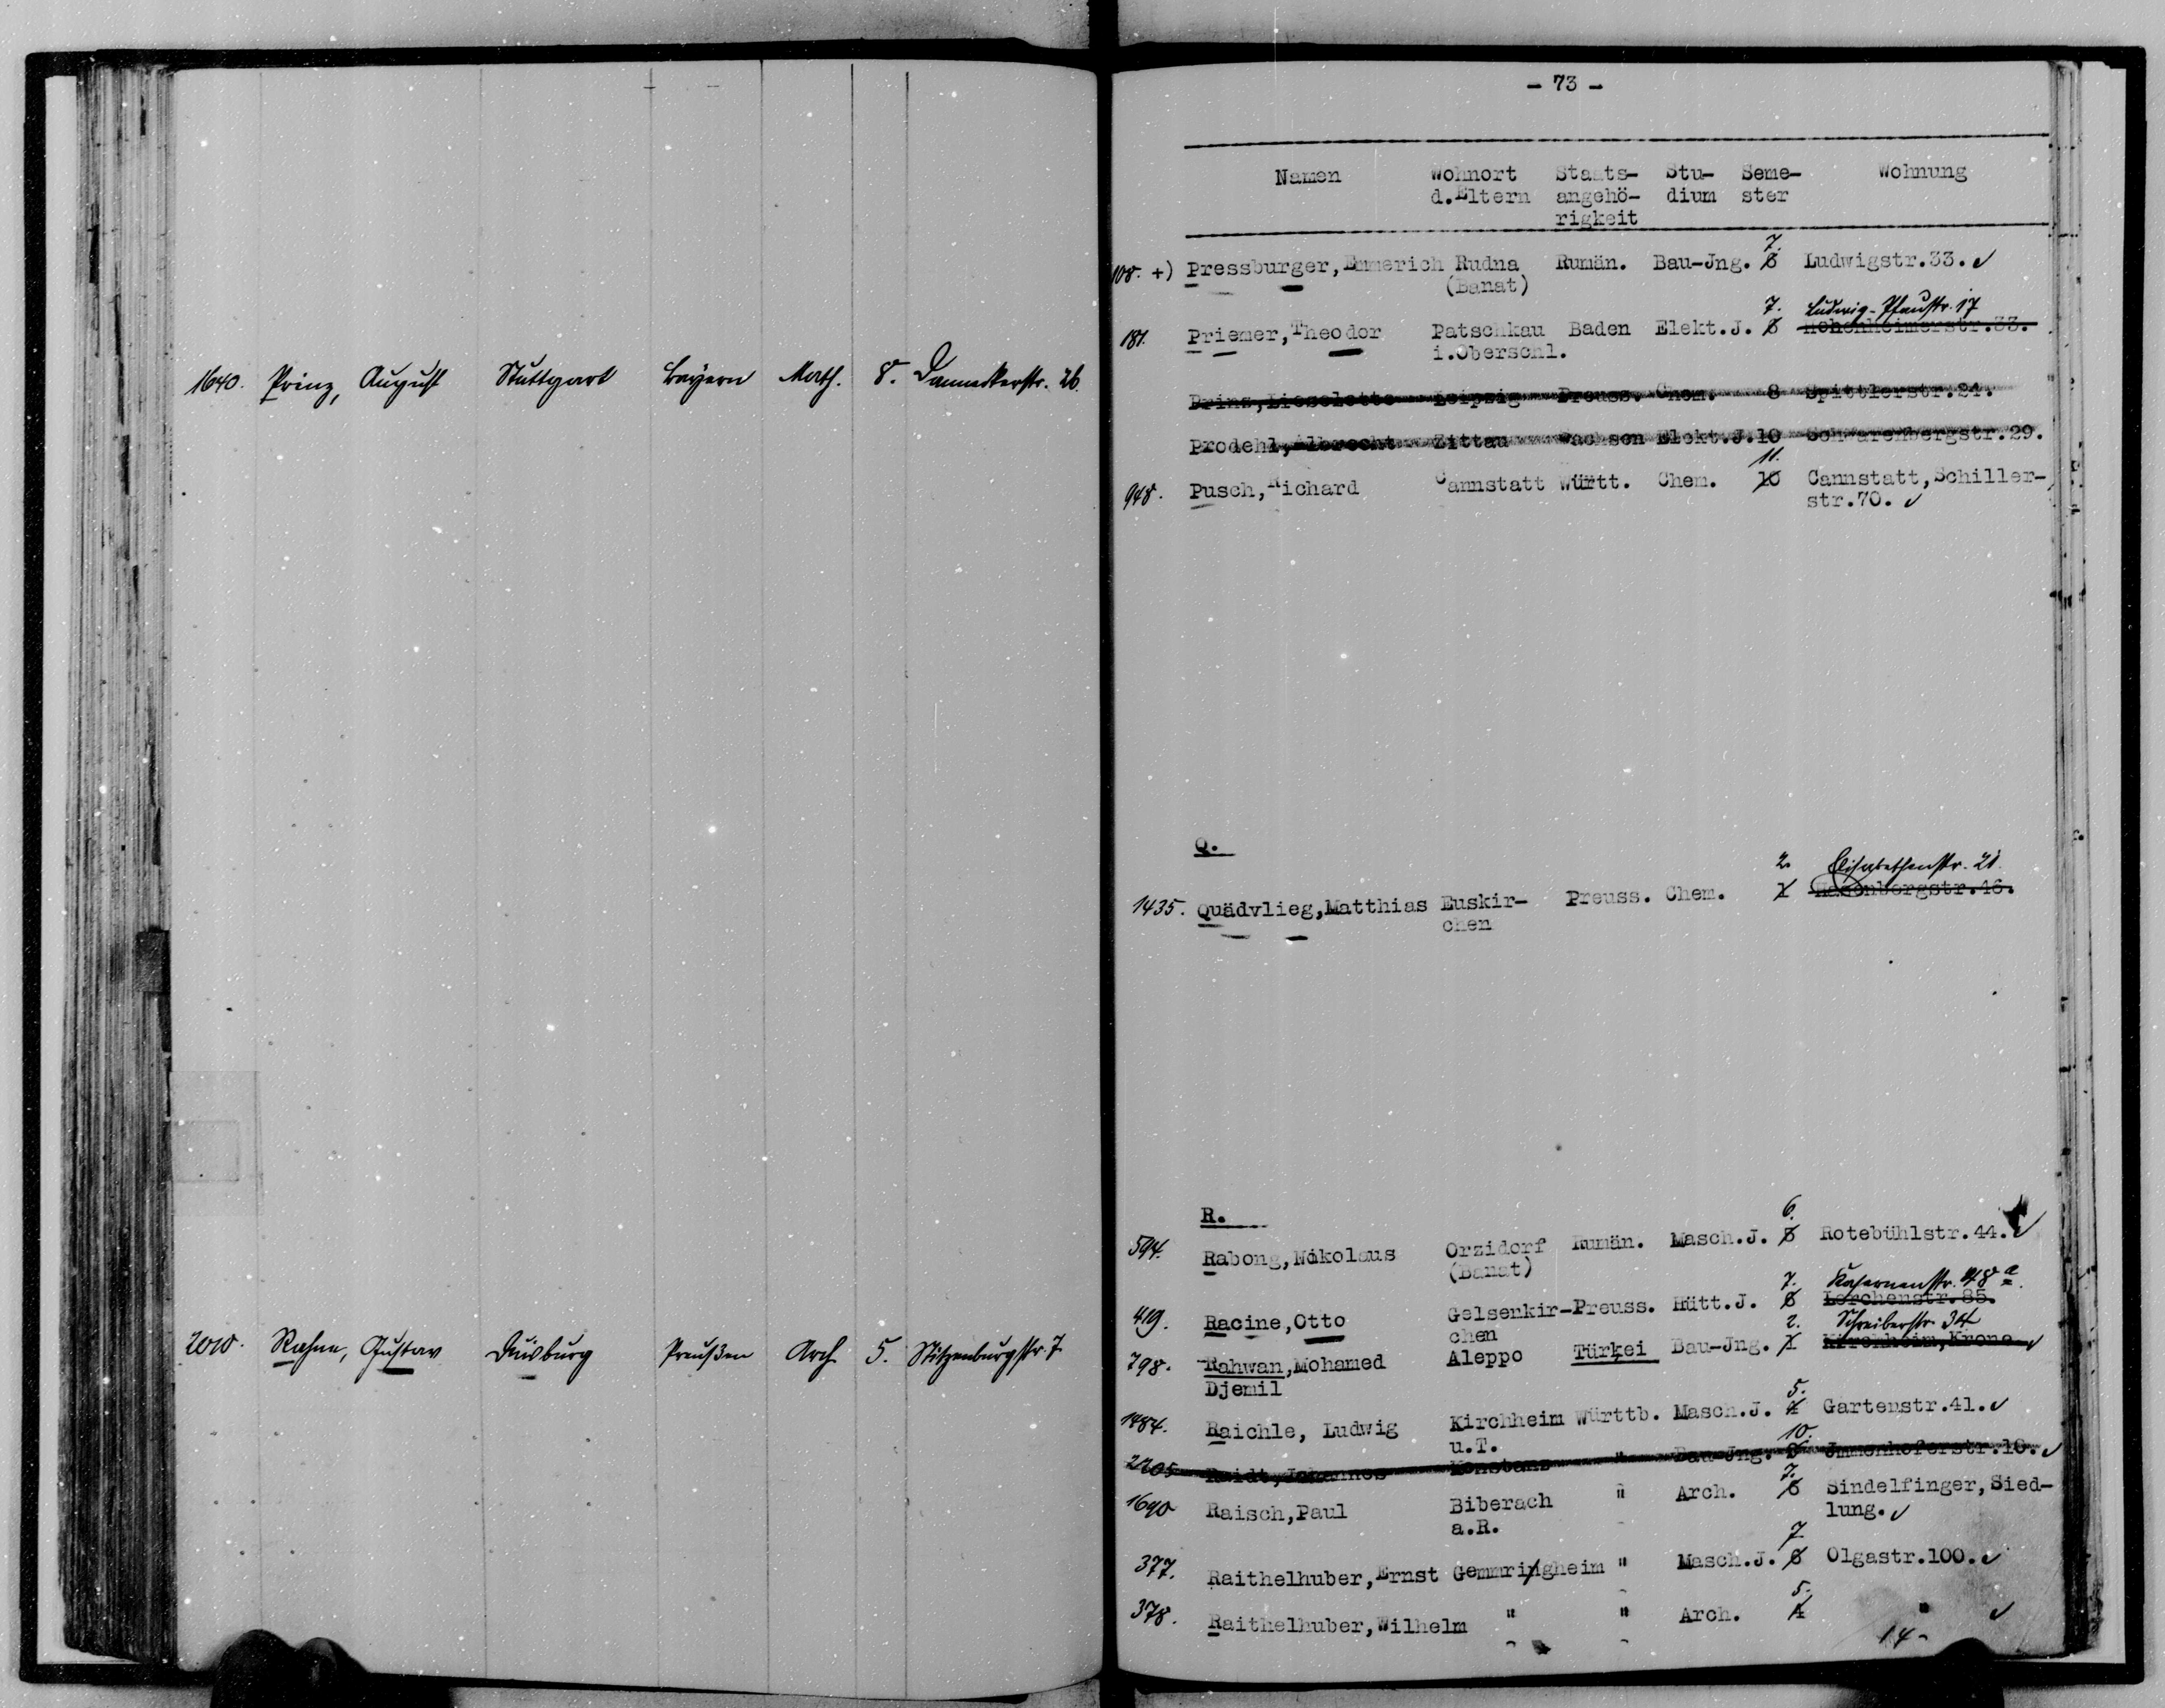 1640. Prinz, August Stuttgart Bayern Math. 8. Danneckerstr. 26.
2010. Rahne, Gustav Duisburg Preußen Arch 5. Stitzenburgstr. 7
- 73 -
Namen Wohnort Staats- Stu- Seme- Wohnung
d.Eltern angehö- dium ster
rigkeit
7.
108. +) Pressburger, Emmerich Rudna Rumän. Bau-Jng. 6 Ludwigstr.33.
(Banat)
7. Ludwig-Pfaustr. 17
181. Priemer, Theodor Patschkau Baden Elekt.J. 6 Hohenheimerstr.33.
i.Oberschl.
Prinz, Lieselotte Leipzig Preuss. Chem. 8 Spittlerstr.24.
Prodehl, Albrecht Zittau Sachsen Elekt.J.10 Scharenbergstr.29.
11.
948. Pusch, Richard Cannstatt Württ. Chem. 10 Cannstatt, Schiller-
str.70.
Q.
2. Elisabethenstr. 21.
1435. Quädvlieg, Matthias Euskir- Preuss. Chem. 1 Hasenbergstr.46.
chen
R.
6.
594. Rabong, Nikolaus Orzidorf Rumän. Masch.J. 5 Rotebühlstr.44.
(Banat)
7. Kasernenstr. 48 a.
419. Racine, Otto Gelsenkir- Preuss. Hütt.J. 6 Lerchenstr.85.
chen
2. Schreiberstr. 34
798. Rahwan, Mohamed Aleppo Türkei Bau-Jng. 1 Kirchheim, Krone
Djemil
5.
1484. Raichle, Ludwig Kirchheim Württb. Masch.J. 4 Gartenstr.41.
u.T.
10.
2205 Raidt, Johannes Konstanz " Bau-Jng. Jmmenhoferstr.10.
7.
1690 Raisch, Paul Biberach " Arch. 6 Sindelfinger, Sied-
a.R. lung.
7
377. Raithelhuber, Ernst Gemmringheim " Masch.J. 6 Olgastr.100.
5.
378. Raithelhuber, Wilhelm " " Arch. 4 "
14-